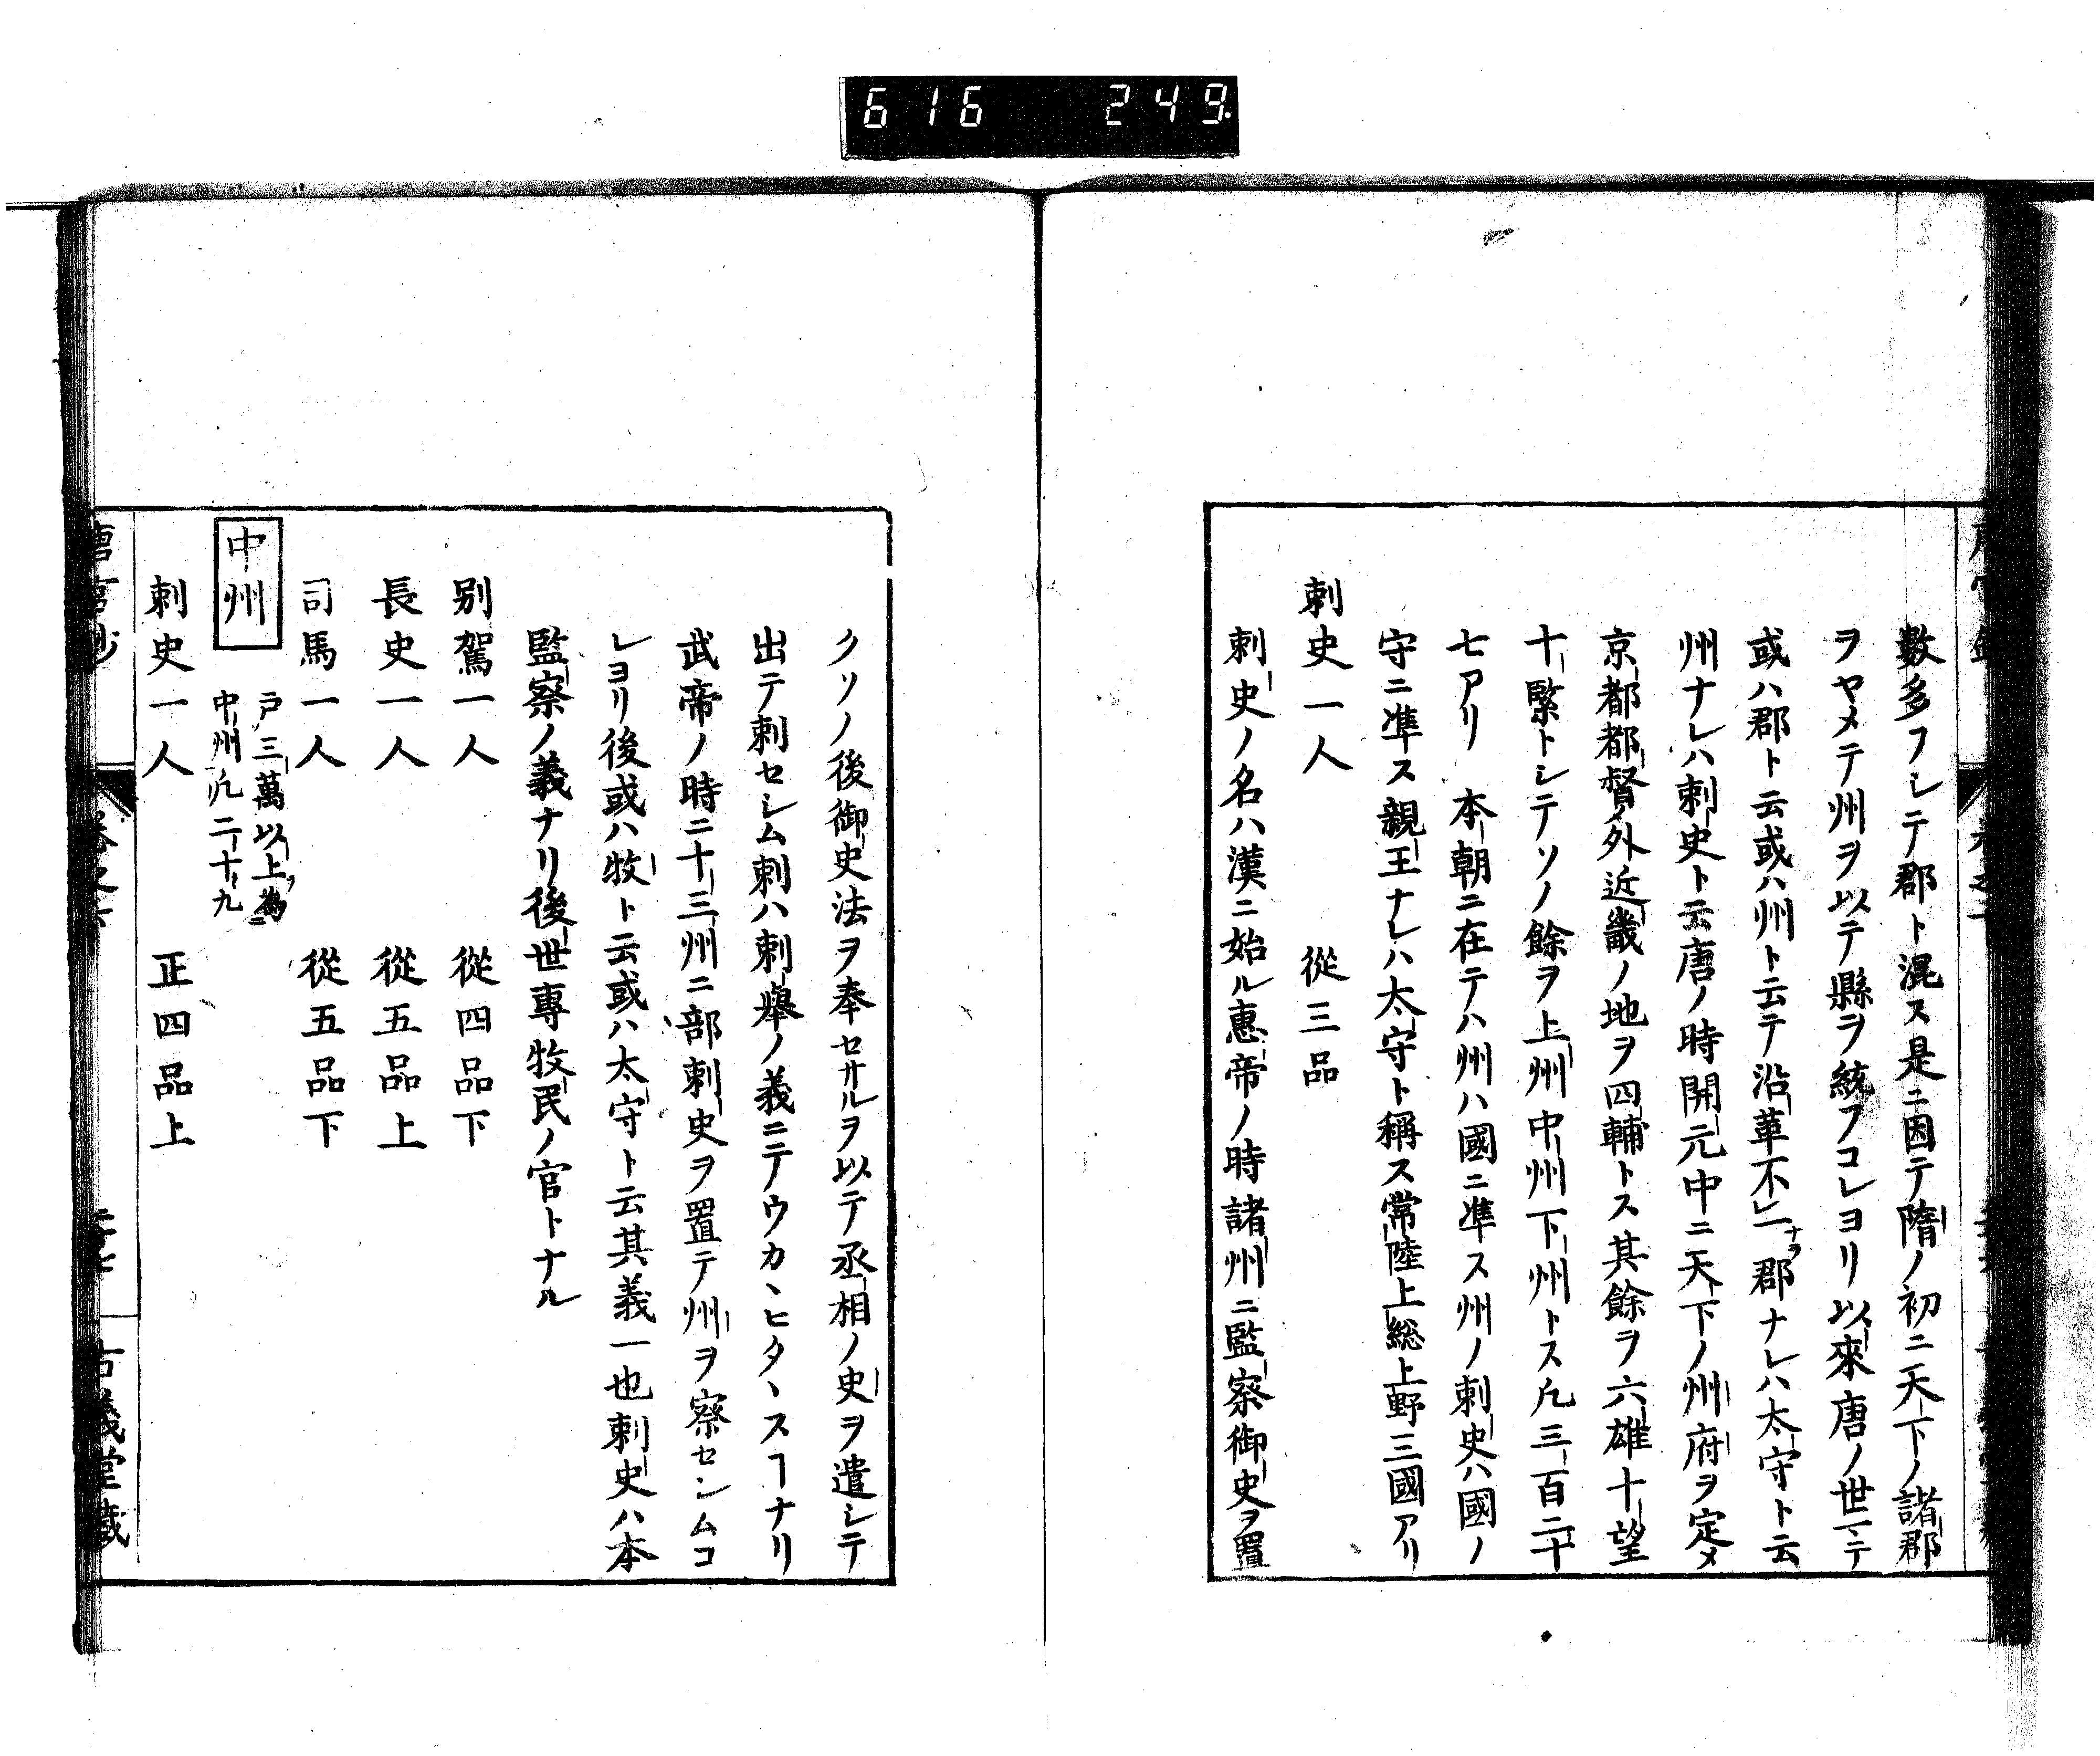 616 249
數多フレテ郡ト混ス是ニ因テ隋ノ初ニ天下ノ諸郡
ヲヤメテ州ヲ以テ縣ヲ統フコレヨリ以來唐ノ世ニテ
或ハ郡ト云或ハ州ト云テ沿革不一ナラ郡ナレハ太守ト云
州ナレハ刺史ト云唐ノ時開元中ニ天下ノ州府ヲ定メ
京都都督ノ外近畿ノ地ヲ四輔トス其餘ヲ六雄十望
十緊トシテソノ餘ヲ上州中州下州トス凡三百二十
七アリ本朝ニ在テハ州ハ國ニ準ス州ノ刺史ハ國ノ
守ニ準ス親王ナレハ太守ト稱ス常陸上総上野三國アリ
刺史一人 從三品
刺史ノ名ハ漢ニ始ル惠帝ノ時諸州ニ監察御史ヲ置
クソノ後御史法ヲ奉セサルヲ以テ丞相ノ史ヲ遣レテ
出テ刺セシム刺ハ刺舉ノ義ニテウカヽヒタヽスヿナリ
武帝ノ時ニ十三州ニ部刺史ヲ置テ州ヲ察センムコ
レヨリ後或ハ牧ト云或ハ太守ト云其義一也刺史ハ本
監察ノ義ナリ後世專牧民ノ官トナル
別駕一人 從四品下
長史一人 從五品上
司馬一人 從五品下
中州 戸三萬以上爲ニ
中州凡二十九
刺史一人 正四品上
古義堂藏